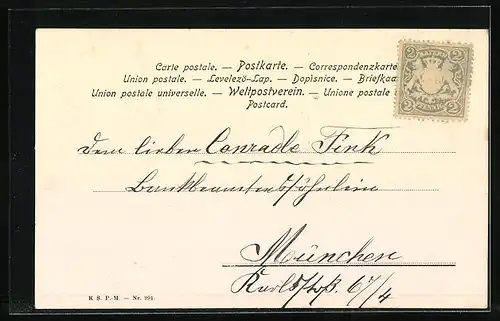 Carte postale. — Postkarte. — Correspondenzkarte
Union postale. — Levelezö-Lap. — Dopisnice. — Briefkaa
Union postale universelle. — Weltpostverein. — Unione postale
Postcard.
BAYERN
2 2
2 2
PFENNIG
Dem lieben Conradle Fink
Bankbeamtenssöhnlein
München
Karlstrß. 67/4
K S. P. M — Nr. 291.